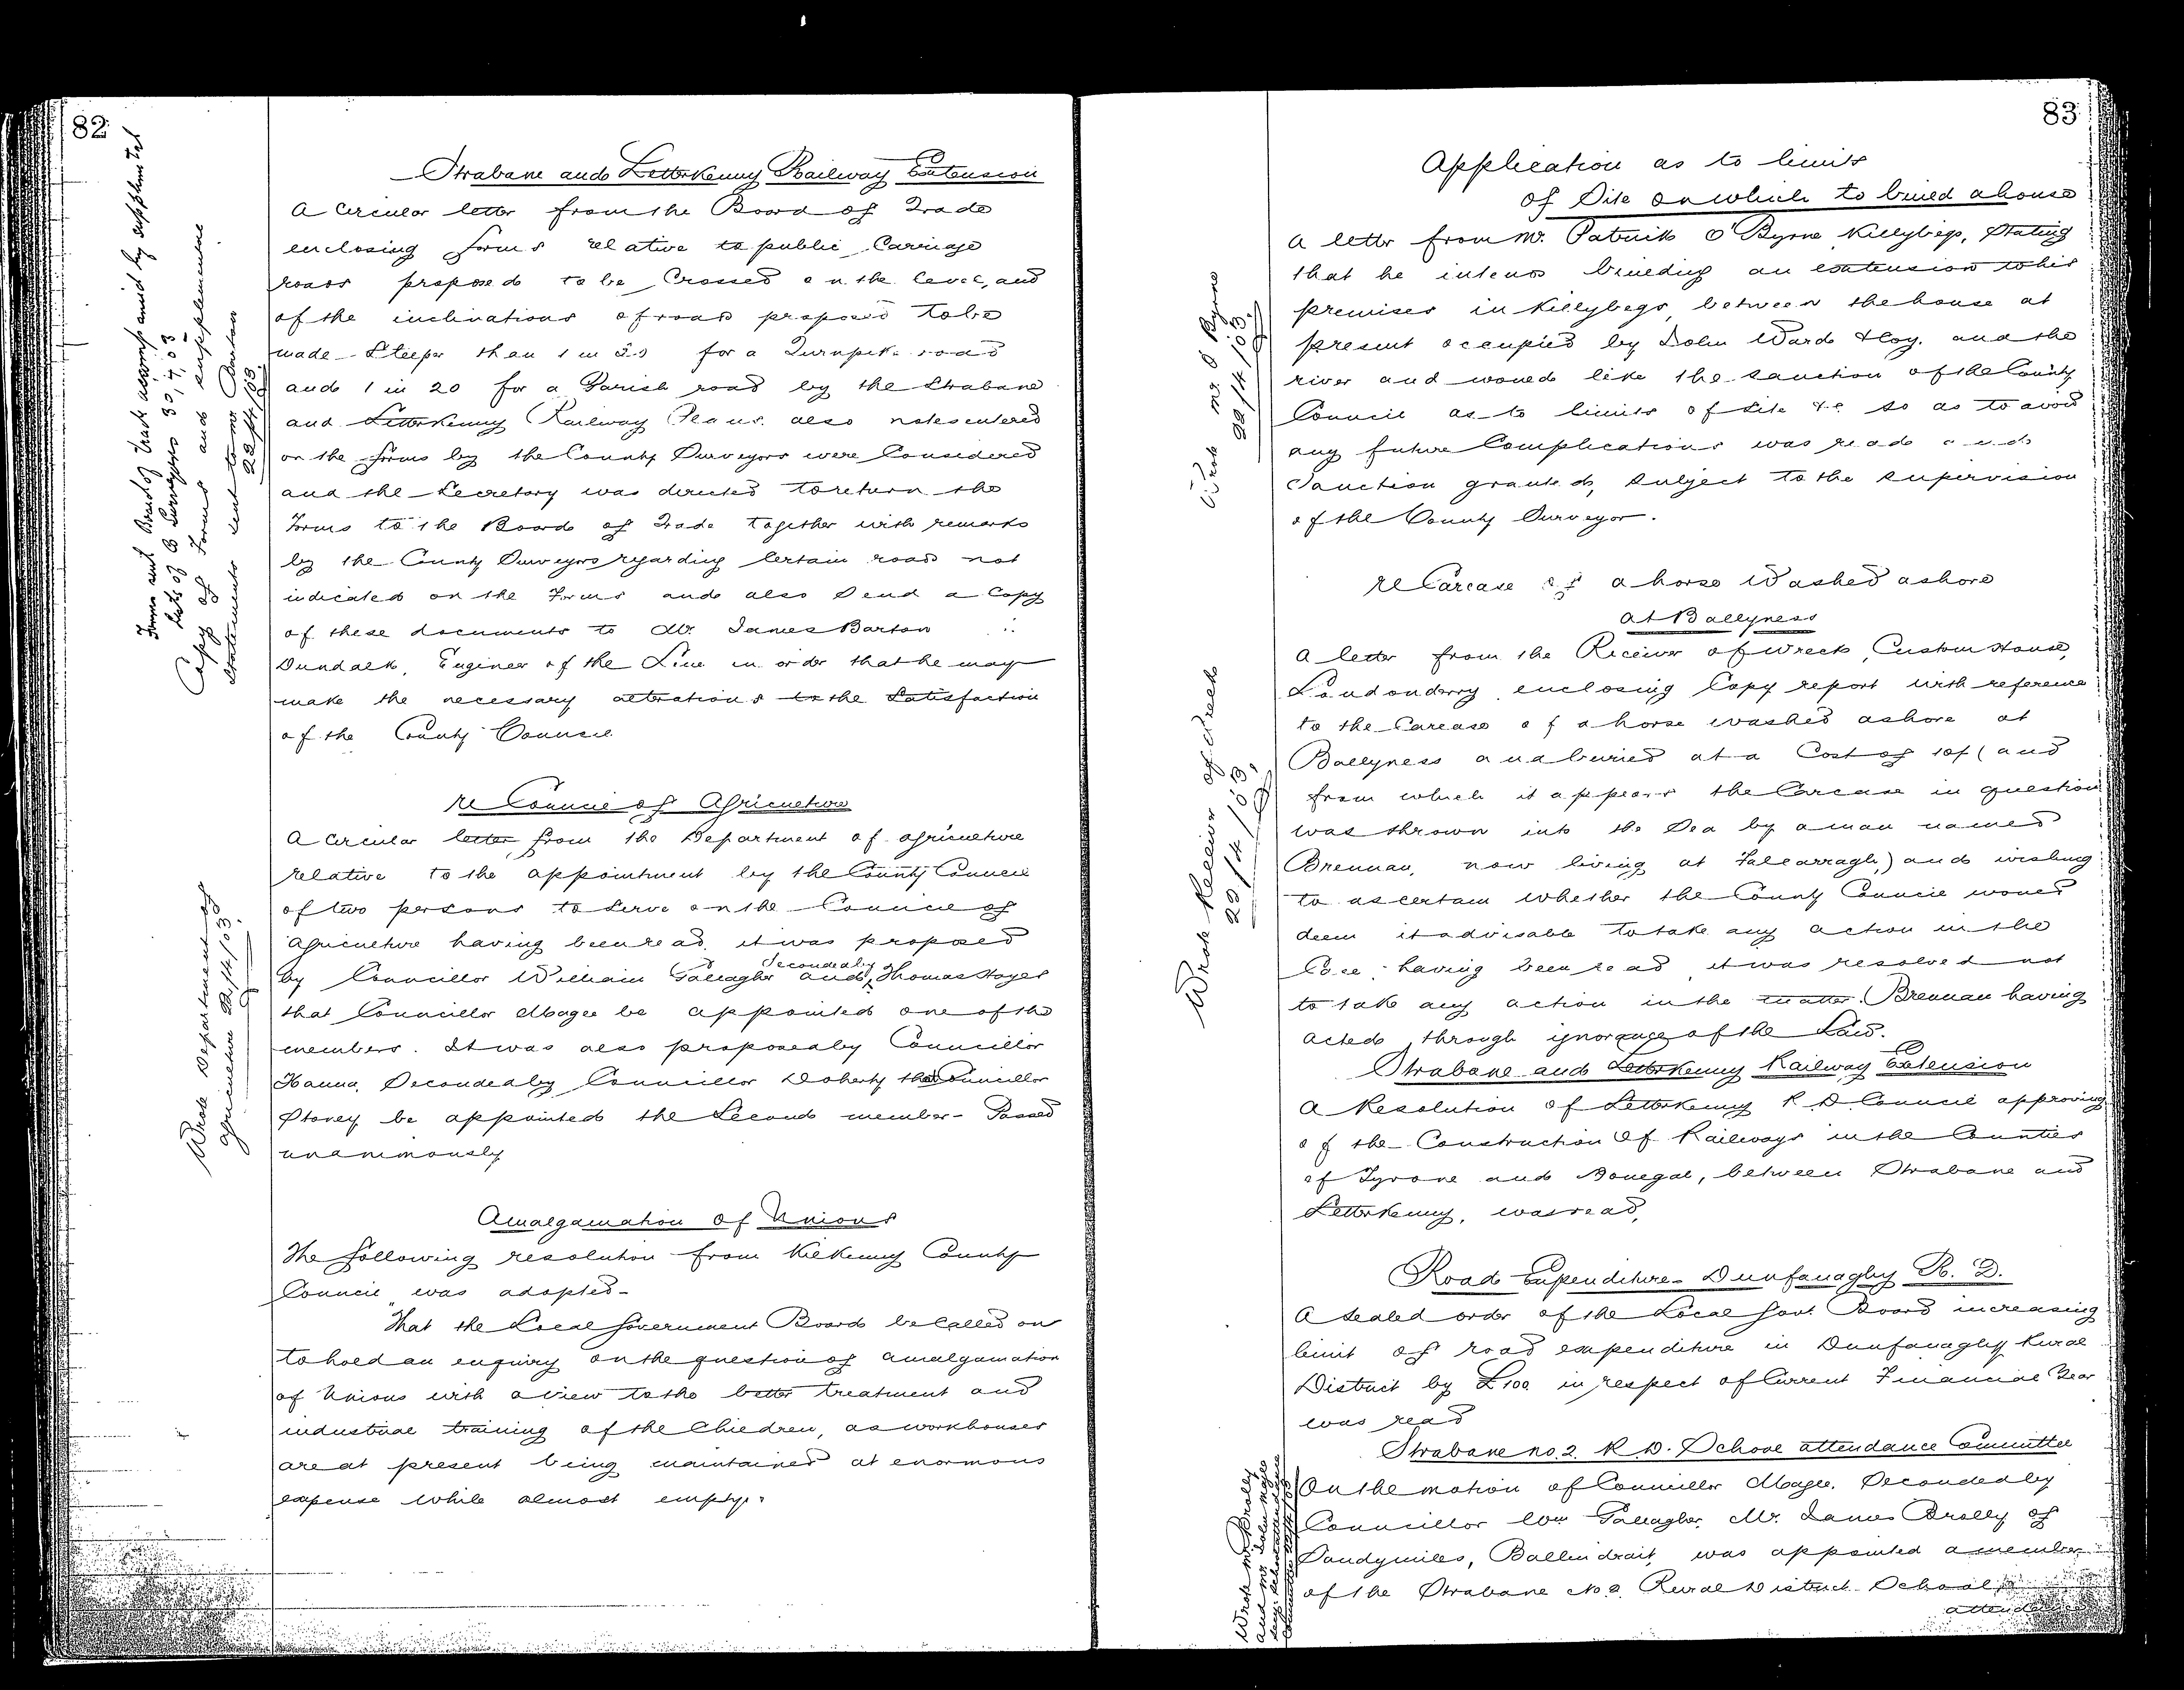 82
Strabane and Letterkenny Railway Extension
A Circular letter from the Board of Trade
enclosing forms relative to public Carriage
roads proposed to be Crossed on the level, and
of the inclinations of roads proposed to be
made Steeper than 1 in 30 for a Turnpike road
and 1 in 20 for a Parish road by the Strabane
and Letterkenny Railway Plans. also notes entered
on the forms by the County Surveyors were Considered
and the Secretary was directed to return the
Forms to the Board of Trade together with remarks
by the County Surveyors regarding Certain roads not
indicated on the Forms and also Send a Copy
of these documents to Mr. James Barton
Dundalk, Engineer of the Line in order that he may
make the necessary alterations to the Satisfaction
of the County Council
Forms sent Board of Trade accompanied by supplemental
lists of Co Surveyors 30/4/03
Copy of Forms and supplementary
Statements sent to Mr Barton
22/4/03
re Council of Agriculture
A Circular letter from the Department of Agriculture
relative to the appointment by the County Council
of two persons to Serve on the Council of
Agriculture having been read it was proposed
by Councillor William Gallagher and Seconded by Thomas Hayes
that Councillor Magee be appointed one of the
members. It was also proposed by Councillor
Hanna, Seconded by Councillor Doherty that Councillor
Storey be appointed the Second member - Passed
unanimously
Wrote Department of
Agriculture 22/4/03.
Amalgamation of Unions
The following resolution from Kilkenny County
Council was adopted -
That the Local Government Board be Called on
to hold an enquiry on the question of amalgamation
of Unions with a view to the better treatment and
industrial training of the Children, as workhouses
are at present being maintained at enormous
expense while almost empty.
83
Application as to limits
of Site on which to build a house
A letter from Mr. Patrick O'Byrne Killybegs, Stating
that he intends building an extension to his
premises in Killybegs, between the house at
present occupied by John Ward & Coy. and the
river and would like the sanction of the County
Council as to limits of Site &c so as to avoid
any future Complications was read and
Sanction granted, Subject to the supervision
of the County Surveyor.
Wrote Mr O'Byrne
22/4/03.
re Carcase of a horse Washed ashore
at Ballyness
A letter from the Receiver of Wreck, Custom House,
Londonderry enclosing Copy report with reference
to the Carcase of a horse washed ashore at
Ballyness and buried at a Cost of 10/- (and
from which it appears the Carcase in question
was thrown into the Sea by a man named
Brennan, now living at Falcarragh,) and wishing
to ascertain whether the County Council would
deem it advisable to take any action in the
Case, having been read it was resolved not
to take any action in the matter. Brennan having
acted through ignorance of the Law.
Wrote Receiver of Wreck
22/4/03,
Strabane and Letterkenny Railway Extension
A Resolution of Letterkenny R. D. Council approving
of the Construction of Railways in the Counties
of Tyrone and Donegal, between Strabane and
Letterkenny, was read,
Road Expenditure - Dunfanaghy R. D.
A sealed order of the Local Govt. Board increasing
limit of road expenditure in Dunfanaghy Rural
District by £100 in respect of Current Financial Year
was read
Strabane no. 2 R. D. School attendance Committee
On the motion of Councillor Magee, Seconded by
Councillor Wm Gallagher, Mr. James Brolly of
Sandymiles, Ballindrait was appointed a member
of the Strabane No 2 Rural District School
attendance
Wrote Mr Brolly
and Mr John